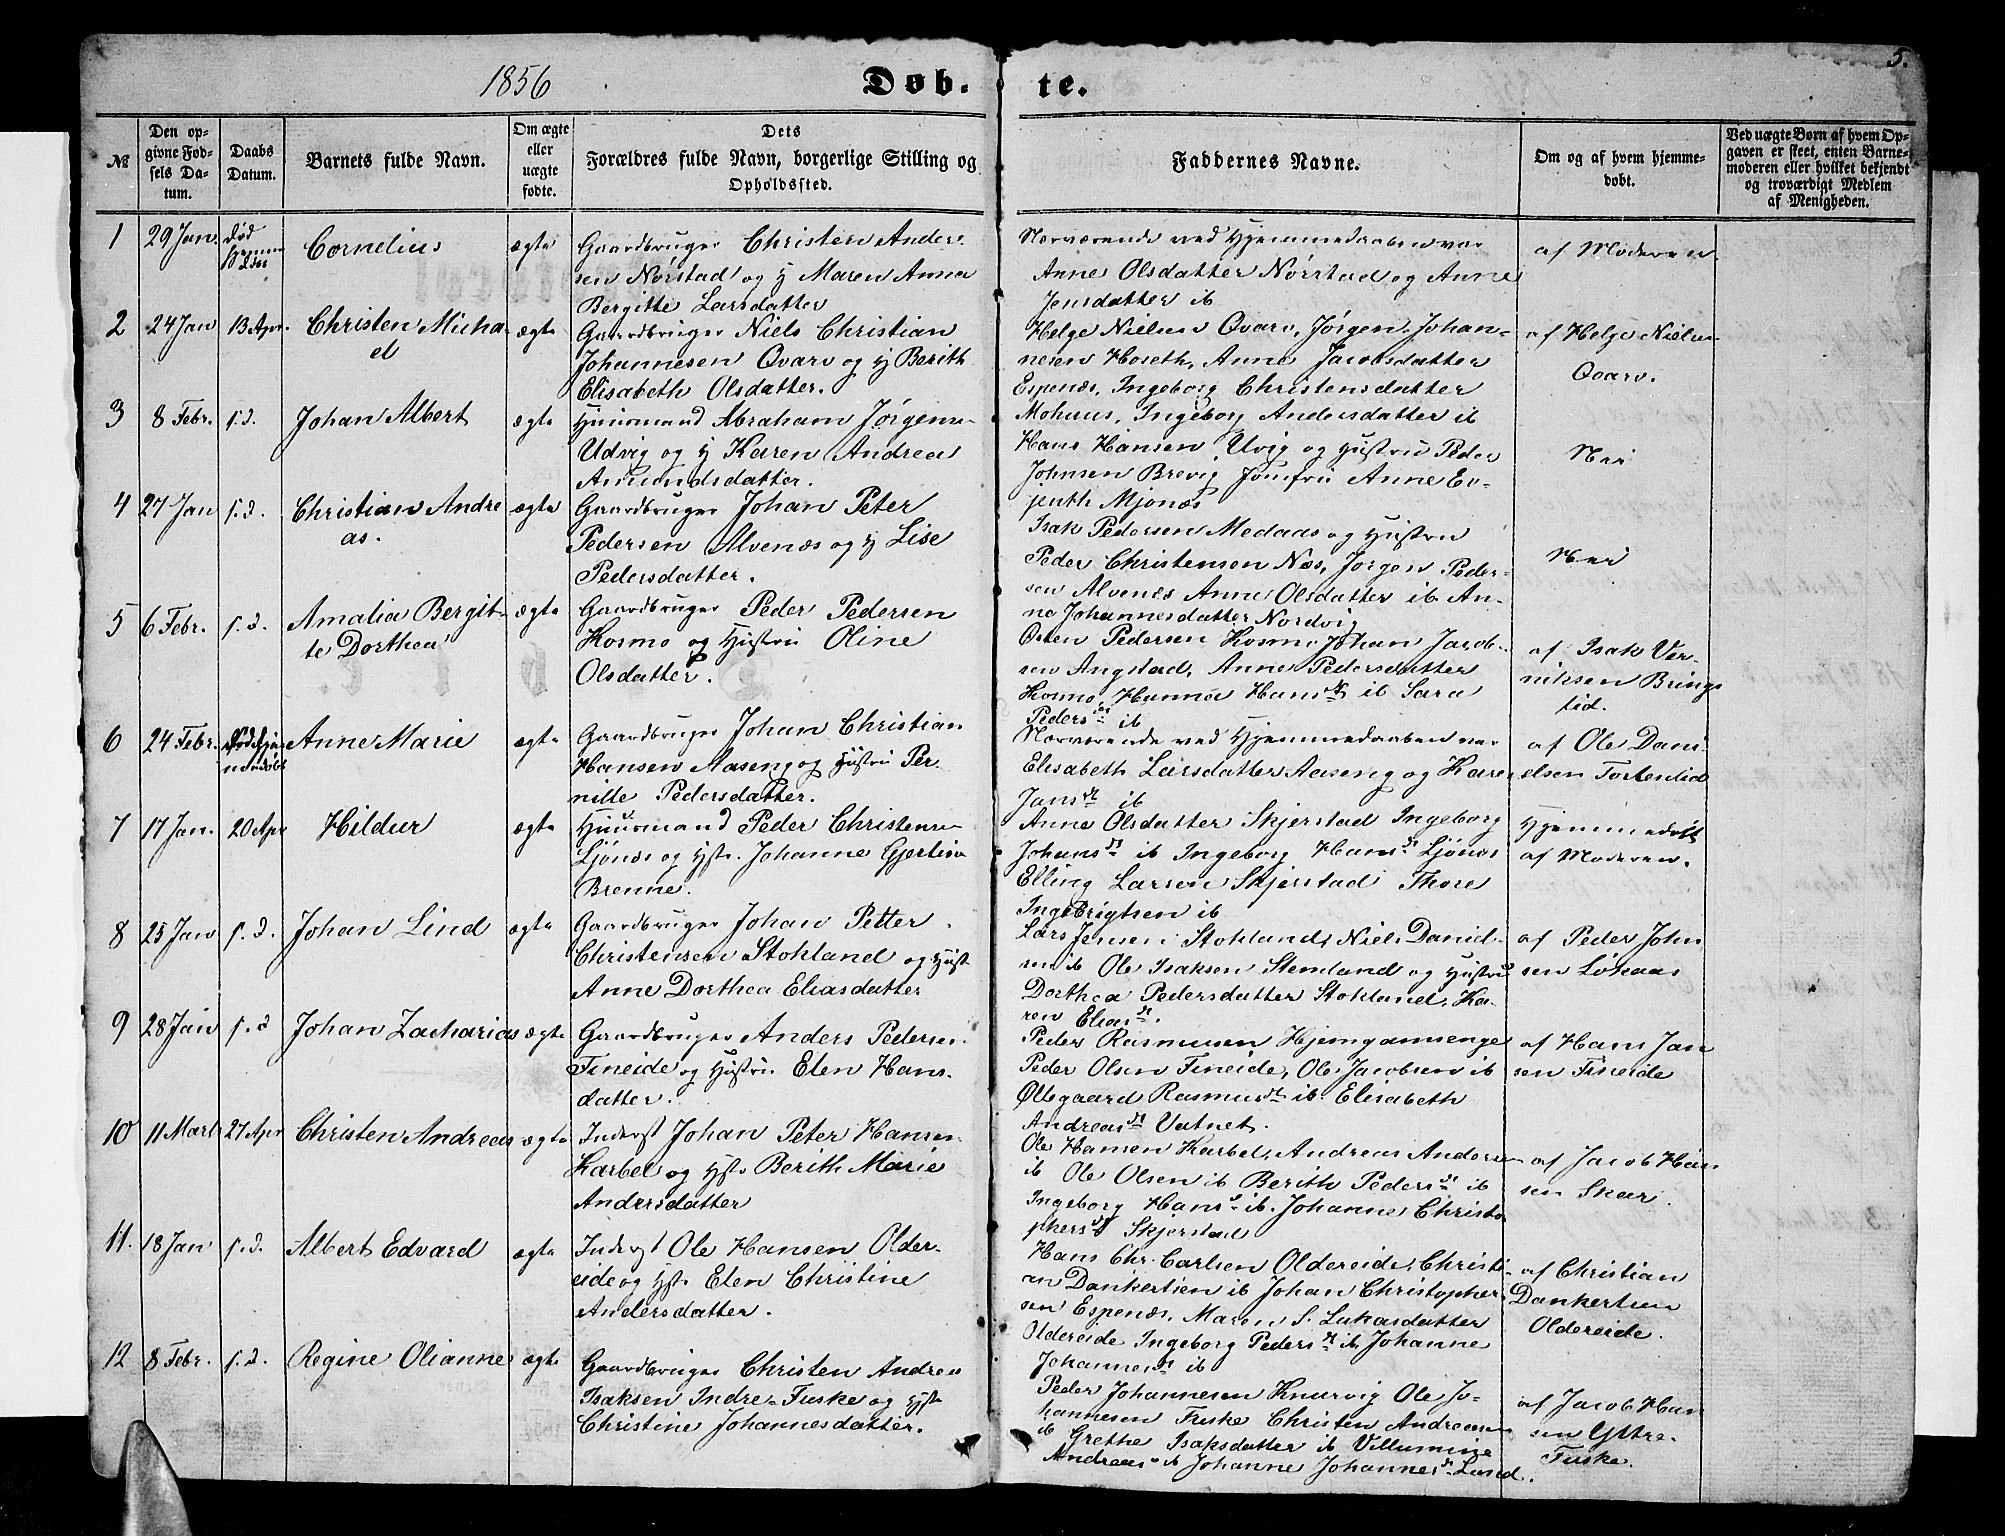 5.
1856
Døb-
te.
№
Den op-
givne Fød-
sels Da-
tum.
Daabs
Datum.
Barnets fulde Navn.
Om ægte
eller
uægte
fødte.
Dets
Forældres fulde Navn, borgerlige Stilling og
Opholdssted.
Faddernes Navne.
Om og af hvem hjemme-
døbt.
Ved uægte Børn af hvem Op-
gaven er skeet, enten Barne-
moderen eller hvilket bekjendt
og troværdigt Medlem
af Menigheden.
1 29 Jan. død
Cornelius ægte
Gaardbruger Christen Ander-
sen Nørstad og H Maren Anna
Bergitte Larsdatter
Nærværende ved Hjemmedaaben var
Anne Olsdatter Nørstad og Anne
Jensdatter ib
af Moderen
2 24 Jan 13 Apr. Christen Micha-
el
ægte
Gaardbruger Niels Christian
Johannesen Qvarv og H Berith
Elisabeth Olsdatter.
Helge Nielsen Qvarv, Jørgen Johan-
nesen Hoseth, Anne Jacobsdatter
Espenæs, Ingeborg Christensdatter
Mohuus, Ingeborg Andersdatter ib
af Helge Nielsen
Qvarv.
3 8 Febr. s.d. Johan Albert ægte
Huusmand Abraham Jørgens-
Udvig og H Karen Andrea
Amundsdatter.
Hans Hansen Uvig og Hustru Peder
Johnsen Brevig Jomfru Anne Ev-
jenth Mjønæs
Nei
4 27 Jan s.d. Christian Andre
as.
ægte
Gaardbruger Johan Peter
Pedersen Alvenæs og H Lise
Pedersdatter.
Isak Pedersen Medaas og Hustru
Peder Christensen Næs, Jørgen Peder-
sen Alvenæs Anne Olsdatter ib. An-
ne Johannesdatter Nordvig
Nei
5 6 Febr. s.d. Amalia Bergit-
te Dorthea
ægte
Gaardbruger Peder Pedersen
Kosmo og Hustru Oline
Olsdatter.
Osten Pedersen Kosmo, Johan Jacob-
sen Angstad, Anne Pedersdatter
Kosmo, Hanna Hansdt ib Sara
Pedersdt ib
af Isak Ver-
niksen Brings
lid.
6 24 Febr. Anne Marie ægte
Gaardbruger Johan Christian
Hansen Aaseng og Hustru Per
nille Pedersdatter.
Nærværende ved Hjemmedaaben var
Elisabeth Larsdatter Aaseng og Karen
Jansdt ib
af Ole Dani-
elsen Tortenlid
7 17 Jan. 20 Apr Hildur ægte
Huusmand Peder Christens-
Ljønæs og Hst. Johanne Gjertine
Brenne.
Anne Olsdatter Skjerstad Ingeborg
Johansdt ib Ingeborg Hansdt Ljønæs
Elling Larsen Skjerstad Thore
Ingebrigtsen ib
Hjemmedøbt
af Moderen.
8 25 Jan s.d. Johan Lind ægte
Gaardbruger Johan Petter
Christensen Stokland og Hust
Anne Dorthea Eliasdatter
Lars Jensen Stokland, Niels Daniel-
sen ib Ole Isaksen Stemland og Hustru
Dorthea Pedersdatter Stokland, Ka-
ren Eliasdt.
af Peder John
sen Løkaas
9 28 Jan s.d Johan Zacharias ægte
Gaardbruger Anders Pedersen
Fineide og Hustru Elen Hans-
datter.
Peder Rasmusen Hjemgamsenge
Peder Olsen Fineide, Ole Jacobsen ib
Øllegaard Rasmusdt ib. Elisabeth
Andreasdt Vatnet.
af Hans Jan
sen Fineide
10 11 Marts 27 Apr Christen Andreas ægte
Inderst Johan Peter Hansen
Karbel og Hst Berith Marie
Andersdatter
Ole Hansen Karbel, Andreas Andersen
ib Ole Olsen ib Berith Pedersdt ib
Ingeborg Hansdt ib. Johanne Christo
phersdt Skjerstad
af Jacob Han
sen Skar.
11. 18 Jan s.d. Albert Edvard ægte
Inderst Ole Hansen Older-
eide og Hst. Elen Christine
Andersdatter.
Hans Chr. Carlsen Oldereide, Christi-
an Dankertsen ib Johan Christopher
sen Espenæs, Maren S. Lukasdatter
Oldereide Ingeborg Pedersdt ib Johanne
Johannesdt ib
af Christian
Dankertsen
Oldereide.
12 8 Febr. s.d. Regine Olianne ægte
Gaardbruger Christen Andreas
Isaksen Indre-Fuske og Hst
Christine Johannesdatter.
Peder Johannesen Knurvig Ole Jo-
hannesen Fuske Christen Andreasen
ib Grethe Isaksdatter ib Villumine
Andreasdt ib Johanne Johannesdt Lund.
af Jacob Han
sen Yttre-
Fuske.